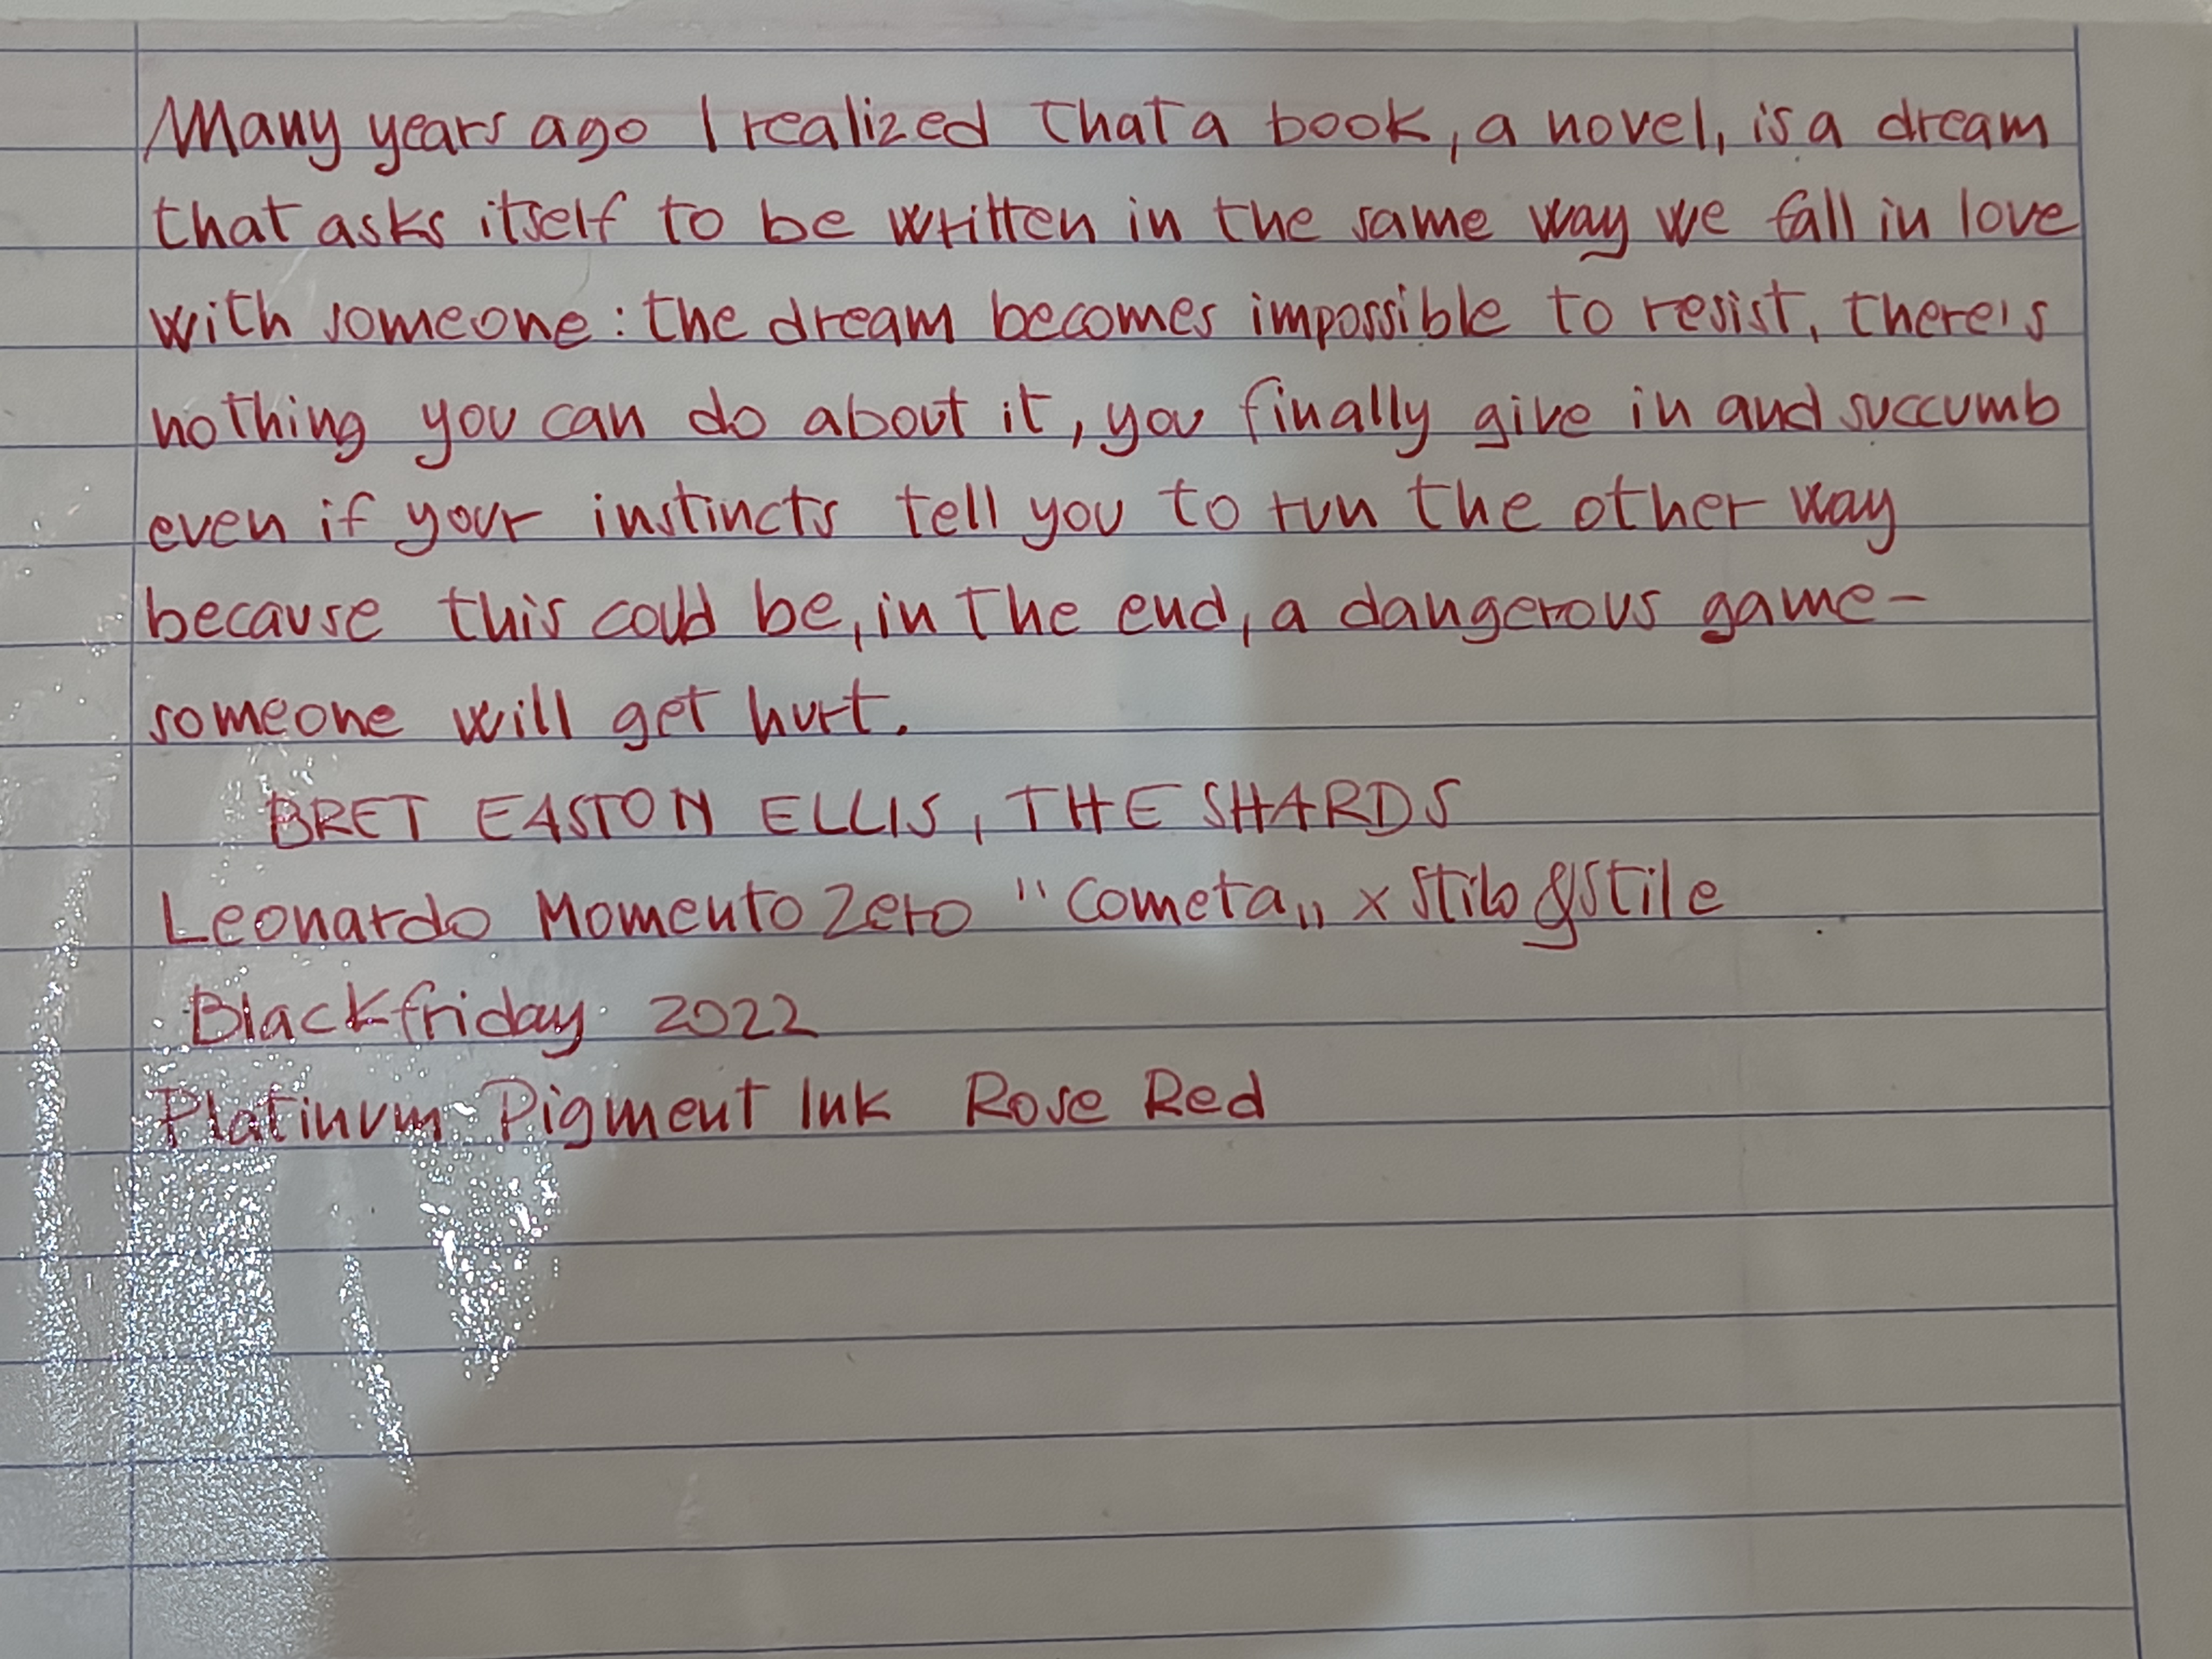 Many years ago I realized that a book, a novel, is a dream
that asks itself to be written in the same way we fall in love
with someone: the dream becomes impossible to resist, there's
nothing you can do about it, you finally give in and succumb
even if your instincts tell you to run the other way
because this could be, in the end, a dangerous game-
someone will get hurt.
BRET EASTON ELLIS, THE SHARDS
Leonardo Momento Zero "Cometa„ x Stilo&Stile
Blackfriday 2022
Platinum Pigment Ink Rose Red